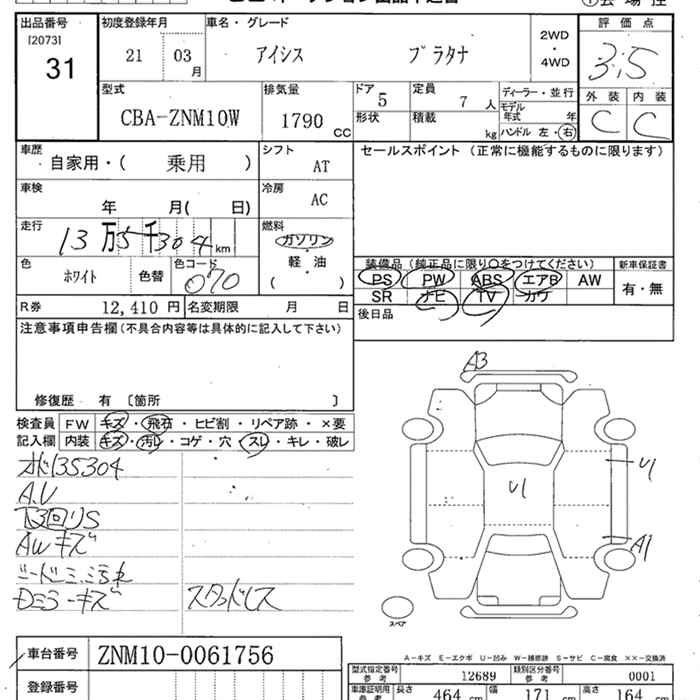 出品番号 初度登録年月 車名・グレード 評価点
[2073]
31
21 03 月 アイシス プラタナ 2WD ・ 4WD 3.5
型式 排気量 ドア 定員 ディーラー・並行 外装 内装
CBA-ZNM10W 1790 CC 5 7 人 モデル年式 年 C C
形状 積載 kg ハンドル 左・右
車歴 シフト セールスポイント (正常に機能するものに限ります)
自家用・( 乗用 ) AT
車検 冷房
年 月( 日) AC
走行 燃料
13万5千304km ガソリン
軽・油
( )
色 色コード 装備品 (純正品に限り○をつけてください) 新車保証書
ホワイト 色替 070 PS PW ABS エアB AW 有・無
SR ナビ TV カワ
R券 12,410 円 名変期限 月 日 後日品
注意事項申告欄(不具合内容等は具体的に記入して下さい)
修復歴 有 〔箇所 〕
検査員 FW キズ・飛石・ヒビ割・リペア跡・×要
記入欄 内装 キズ・汚レ・コゲ・穴・スレ・キレ・破レ
A3
135304
A.V
U1
U1
AWキズ
A1
スタッドレス
スペア
A-キズ E-エクボ U-凹み W-補修跡 S-サビ C-腐食 ××-交換済
車台番号 ZNM10-0061756
型式指定番号 参考 12689 類別区分番号 参考 0001
登録番号
車庫証明用 参考 長さ 464 cm 幅 171 cm 高さ 164 cm